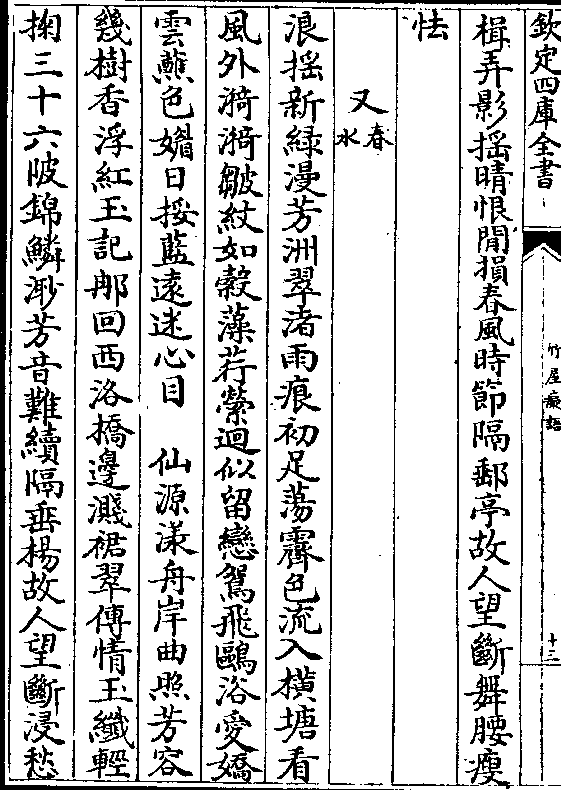 欽定四庫全書
竹屋癡語
十三
楫弄影揺晴恨閒損春風時節隔郵亭故人望斷舞腰瘦
怯
又春水
浪揺新緑漫芳洲翠渚雨痕初足蕩霽色流入横塘看
風外漪漪皺紋如縠藻荇縈迴似留戀鴛飛鷗浴愛嬌
雲蘸色媚日挼藍遠迷心目　仙源漾舟岸曲照芳容
幾樹香浮紅玉記那回西洛橋邊濺裙翠傳情玉纖輕
掬三十六陂錦鱗渺芳音難續隔垂楊故人望斷浸愁